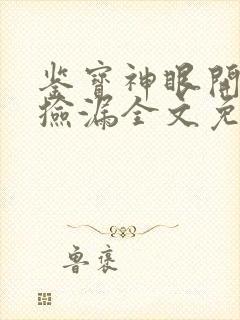 鉴宝神眼开
捡漏全文免
鲁褒